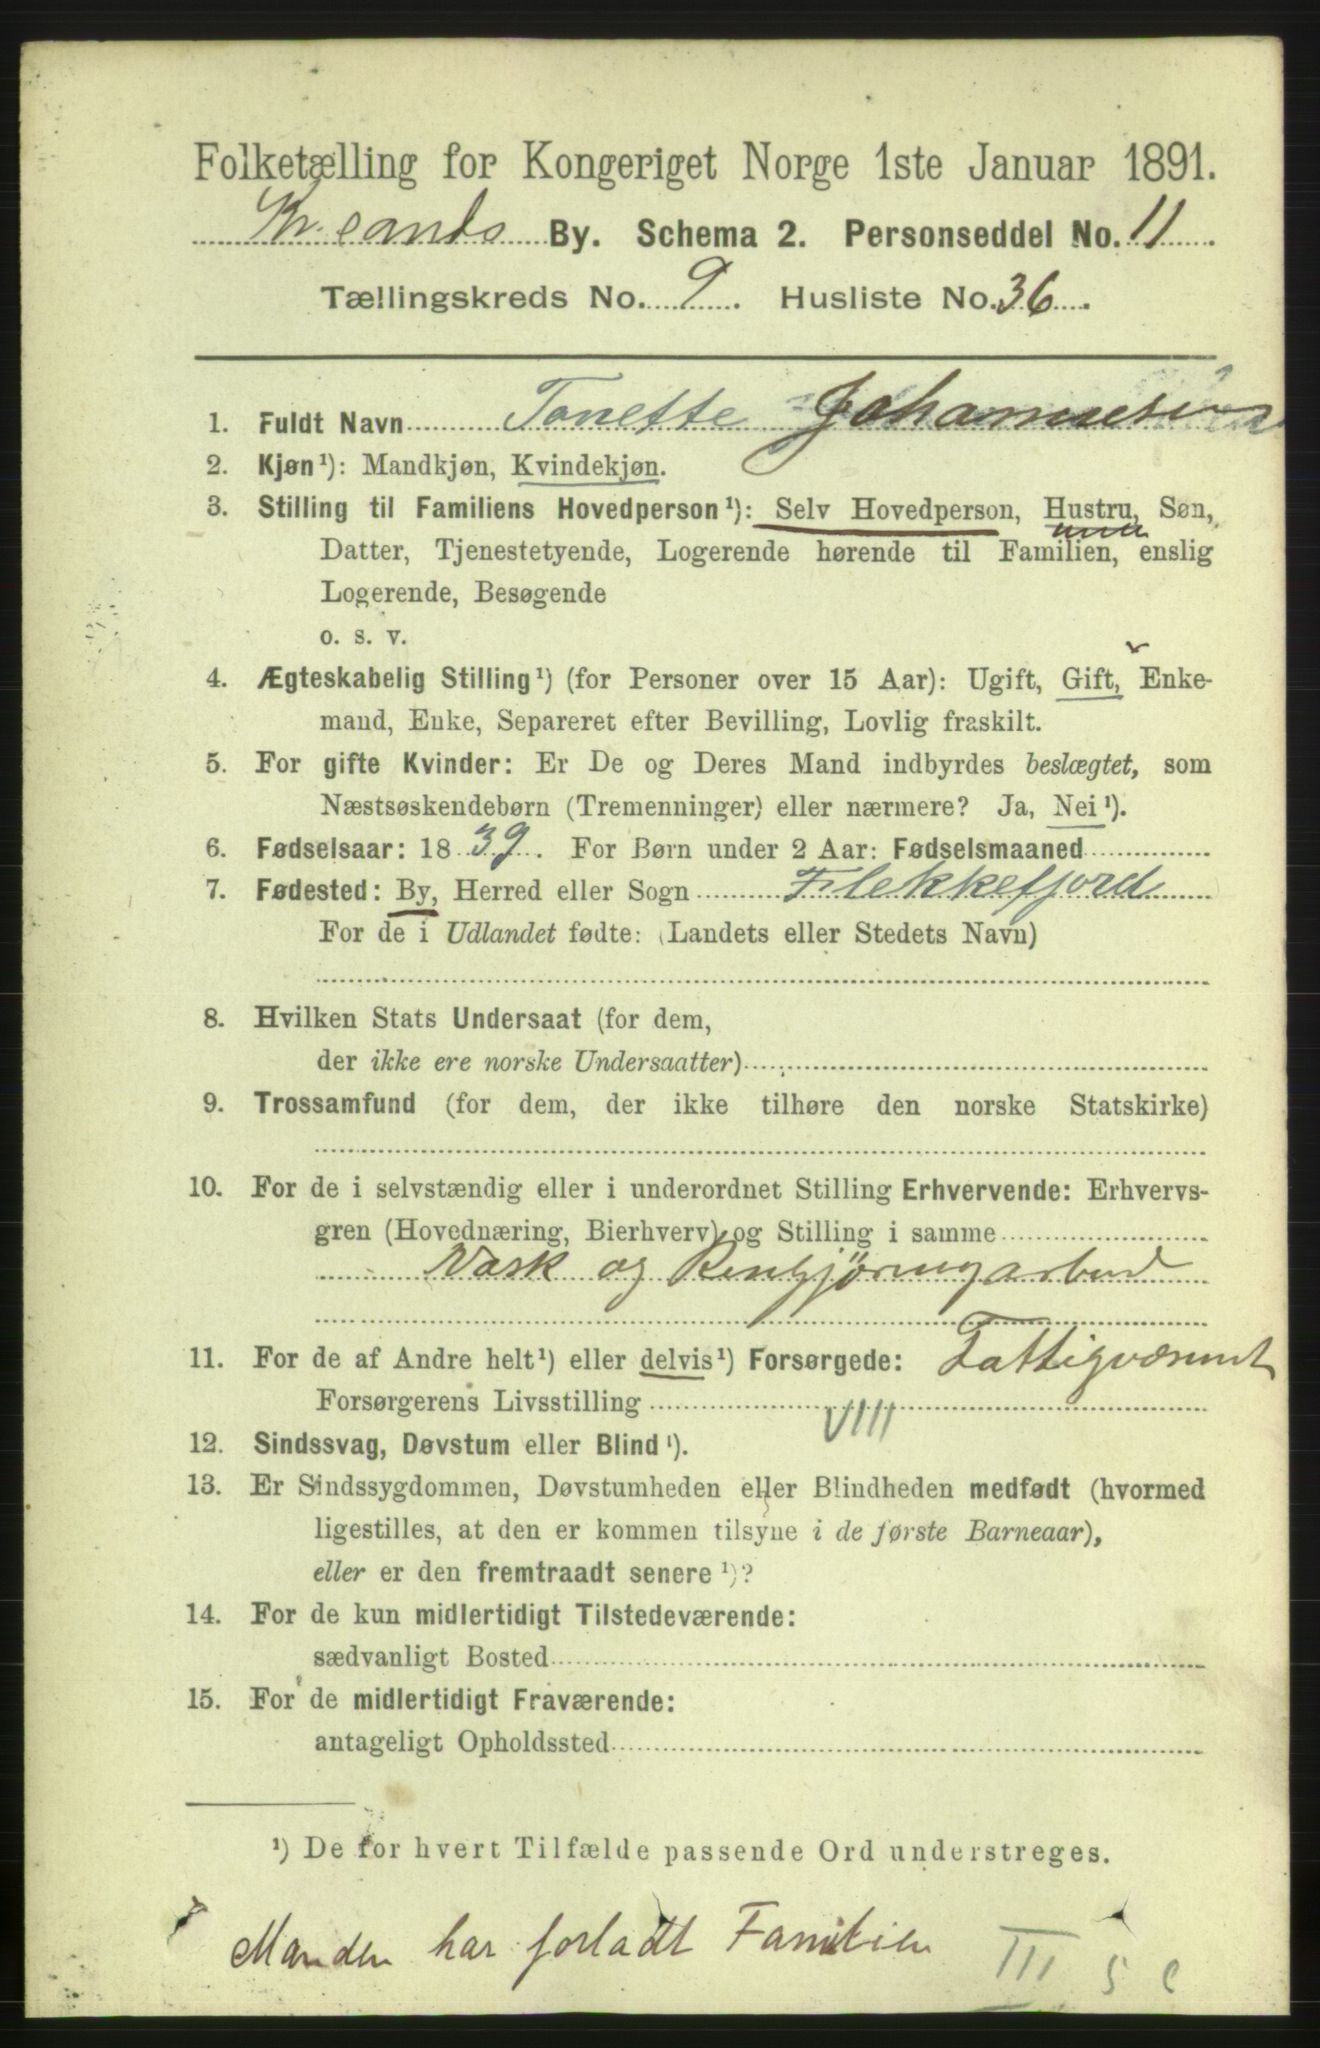 Folketælling for Kongeriget Norge 1ste Januar 1891.
Kr.sands By. Schema 2. Personseddel No. 11
Tællingskreds No. 9. Husliste No. 36.
1. Fuldt Navn Tonette Johannesen
2. Kjøn¹): Mandkjøn, Kvindekjøn.
3. Stilling til Familiens Hovedperson¹): Selv Hovedperson, Hustru, Søn,
Datter, Tjenestetyende, Logerende hørende til Familien, enslig
Logerende, Besøgende
o. s. v.
4. Ægteskabelig Stilling¹) (for Personer over 15 Aar): Ugift, Gift, Enke-
mand, Enke, Separeret efter Bevilling, Lovlig fraskilt.
5. For gifte Kvinder: Er De og Deres Mand indbyrdes beslægtet, som
Næstsøskendebørn (Tremenninger) eller nærmere? Ja, Nei¹).
6. Fødselsaar: 1839. For Børn under 2 Aar: Fødselsmaaned
7. Fødested: By, Herred eller Sogn Flekkefjord
For de i Udlandet fødte: (Landets eller Stedets Navn)
8. Hvilken Stats Undersaat (for dem,
der ikke ere norske Undersaatter)
9. Trossamfund (for dem, der ikke tilhøre den norske Statskirke)
10. For de i selvstændig eller i underordnet Stilling Erhvervende: Erhvervs-
gren (Hovednæring, Bierhverv) og Stilling i samme
Vask og Rengjøringarbeid
11. For de af Andre helt¹) eller delvis¹) Forsørgede: Fattigvæsenet
Forsørgerens Livsstilling
VIII
12. Sindssvag, Døvstum eller Blind¹).
13. Er Sindssygdommen, Døvstumheden eller Blindheden medfødt (hvormed
ligestilles, at den er kommen tilsyne i de første Barneaar),
eller er den fremtraadt senere¹)?
14. For de kun midlertidigt Tilstedeværende:
sædvanligt Bosted
15. For de midlertidigt Fraværende:
antageligt Opholdssted
¹) De for hvert Tilfælde passende Ord understreges.
Manden har forladt Familien
III 5 c